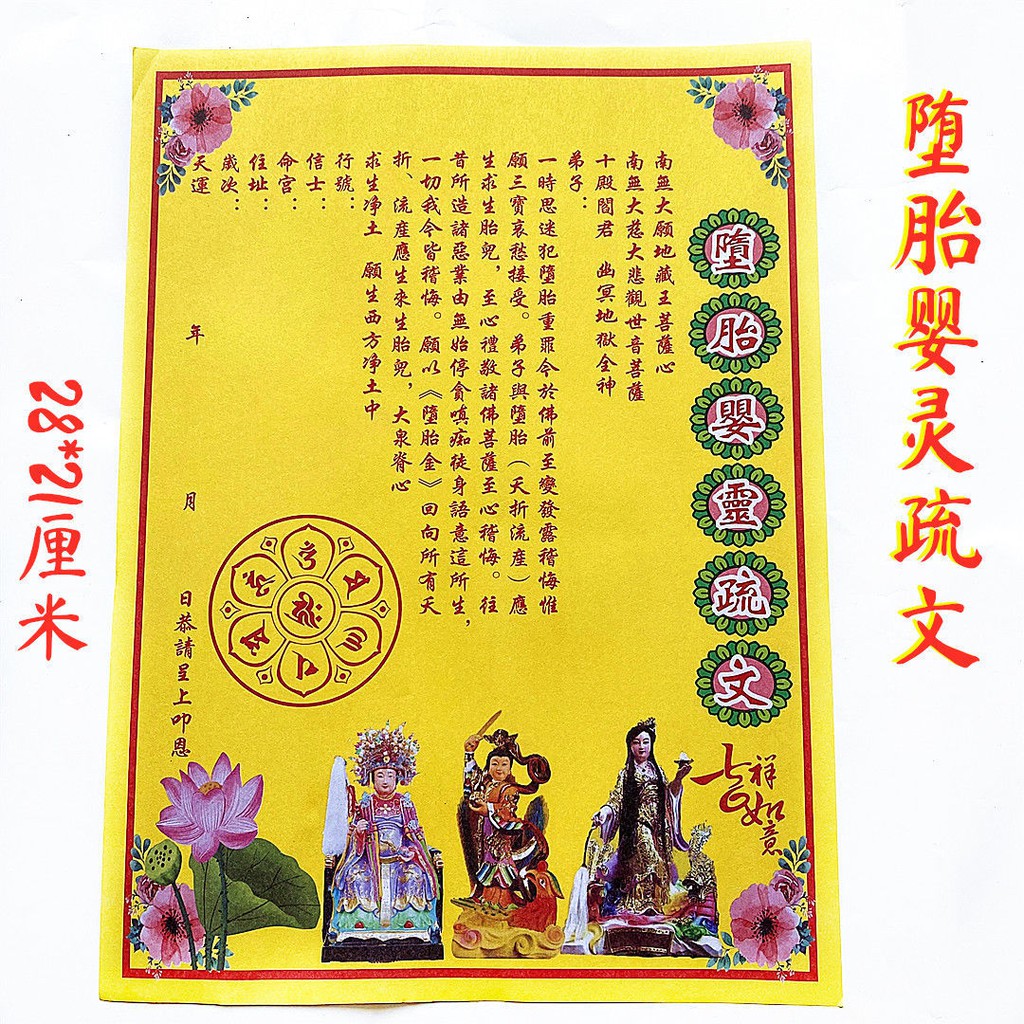 堕胎婴灵疏文
墮胎嬰靈疏文
南無大願地藏王菩薩心
南無大慈大悲觀世音菩薩
十殿閻君　幽冥地獄全神
弟子：
一時思迷犯墮胎重罪今於佛前至變發露稽悔惟
願三寶哀愁接受。弟子與墮胎（天折流産）應
生求生胎兒，至心禮敬諸佛菩薩至心稽悔。往
昔所造諸惡業由無始停貪嗔痴徒身語意這所生，
一切我今皆稽悔。願以《墮胎金》回向所有天
折、流産應生來生胎兒，大泉脊心
求生净土　願生西方净土中
行號：
信士：
命宫：
住址：
歲次：
天運　年　月　日恭請呈上叩恩
吉祥如意
28*21厘米